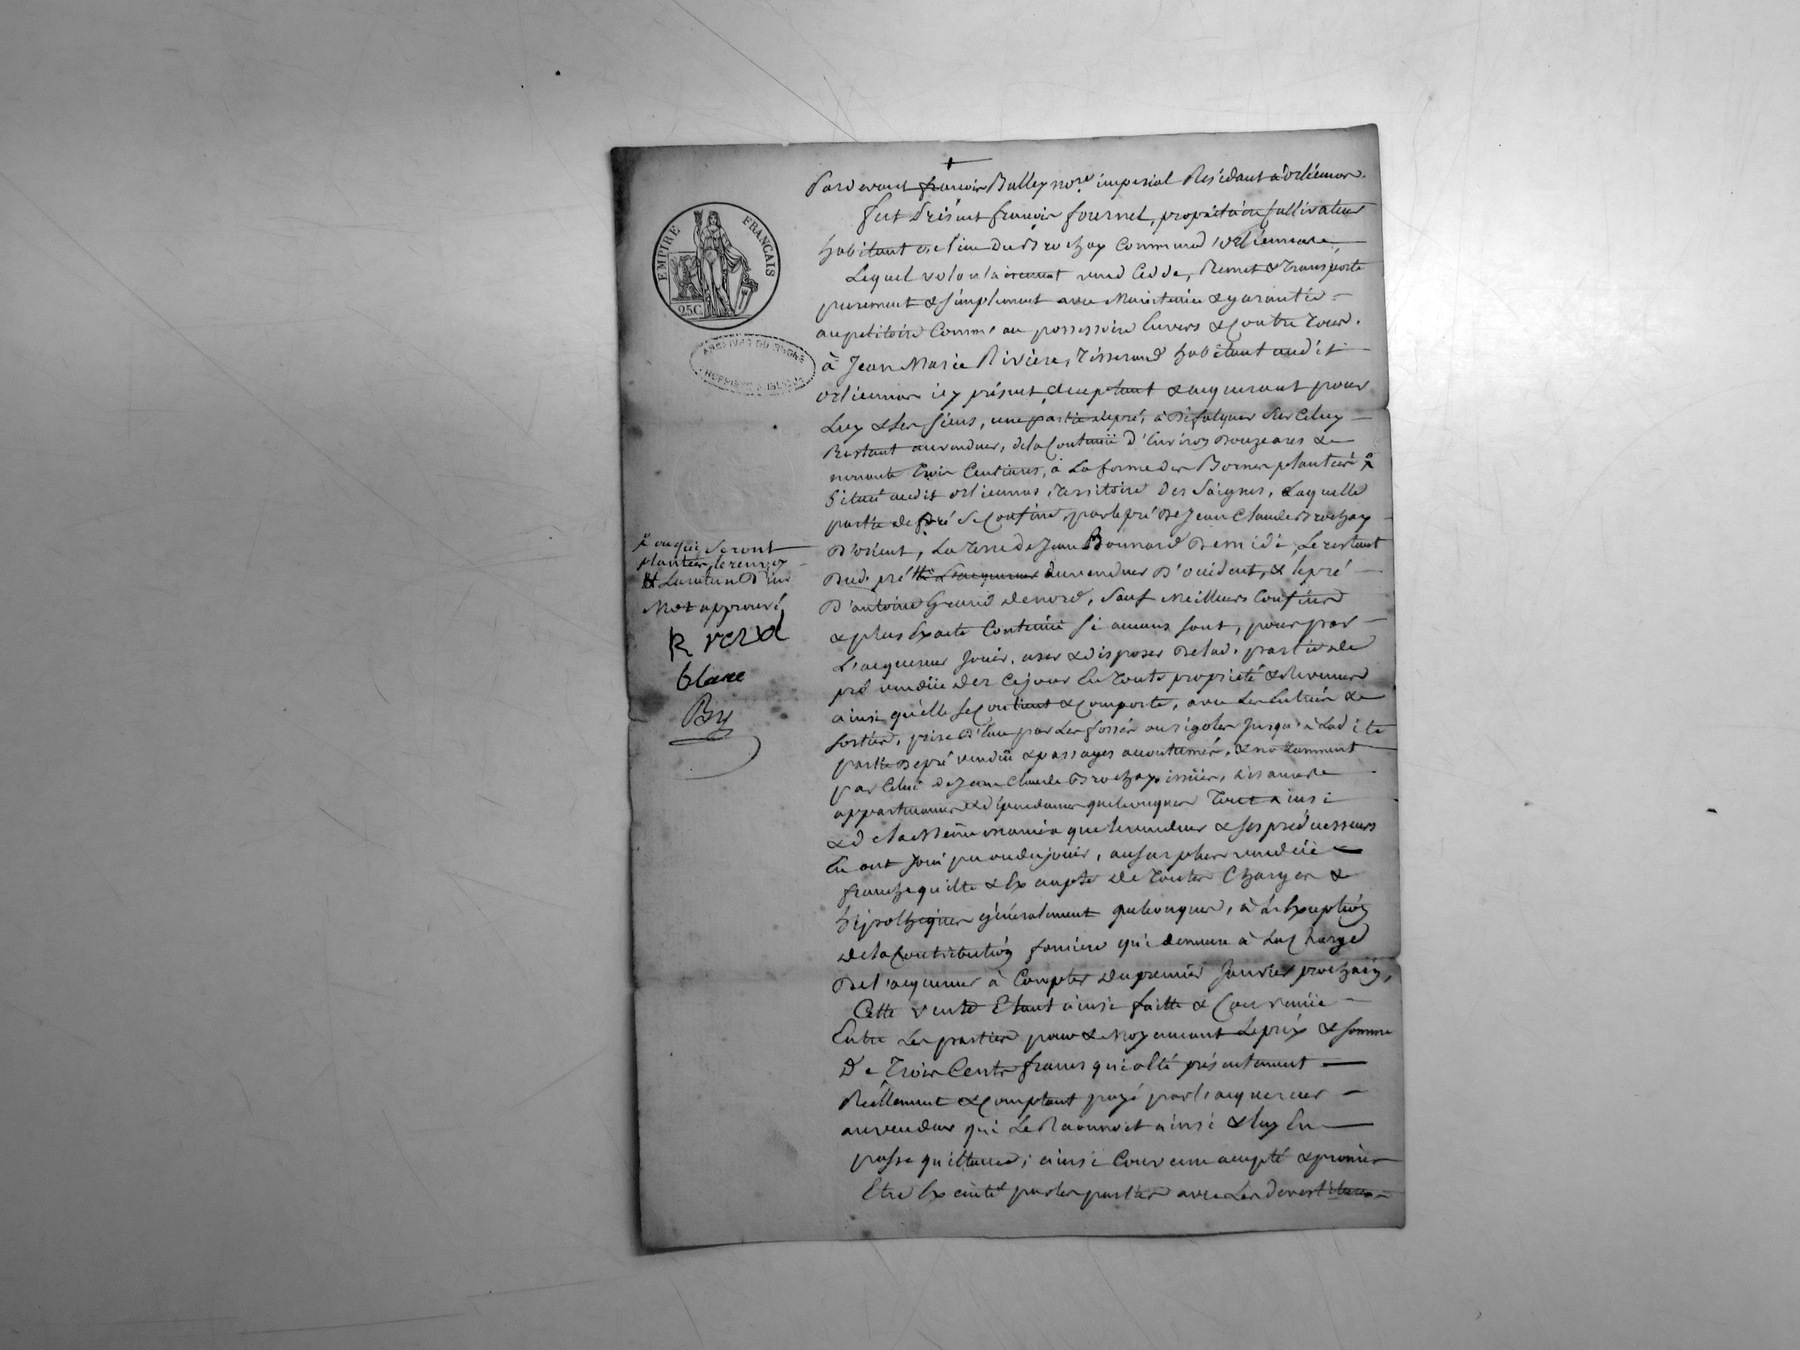 EMPIRE FRANÇAIS
25C.
ARCHIVES DU RHONE
Pardevant françois Balley nore. imperial Résidant à orliennas.
fut Présent françois fournel, propriétaire Cultivateur
habitant au lieu du Brochay Commune d'orliennas,
Lequel volontairement vend Cedde, Remet & transporte
purement & simplement avec Maintenüe & garantie =
au petitoire Comme au possessoire Envers & Contre tous.
à Jean Marie Rivière, Tisserand habitant audit
orliennas icy présent acceptant & acquerant pour
Luy & Les siens, une partie de pré, à Défalquer sur Celuy
Restant au vendeur, de la Contenüe d'Environ Douze ares &
nonante trois Centiares, à La forme des Bornes plantées
située audit orliennas, territoire des Saignes, Laquelle
partie de pré se Confine, par le pré De Jean Claude Brochay
D'orient, La terre de Jean Bonnard De midi, Le restant
Dud. pré du vendeur D'occident, & le pré
D'antoine Grand de nord, Sauf Meilleurs Confins
& plus Exacte Contenüe si aucuns sont, pour par
L'acquereur Jouir, user & disposer De lad. partie de
pré vendüe dez Ce jour En toute propriété & Revenus
ainsi qu'elle se Contient & Comporte, avec Les Entrées &
sorties, prise d'Eau par Les fossés ou rigoles Jusqu'à Ladite
partie De pré vendüe & passages accoutumés, & notamment
par Celui de Jean Claude Brochay,
appartenances & dépendances quelconques Tout ainsi
& de la Même manière que le vendeur & ses prédecesseurs
En ont Joui pu ou du jouir, au surplus vendüe
franche quitte & Exempte de toutes Charges &
hipotheques généralement quelconques, à L'Exception
de la Contribution foncière qui demeure à La Charge
De l'acquereur à Compter du premier Janvier prochain,
Cette vente Etant ainsi faitte & Convenüe
Entre Les parties pour & Moyennant Le prix & somme
De Trois Cents francs qui a été présentement
Réellement & Comptant payé par l'acquereur
au vendeur qui Le Reconnoit ainsi & luy En
passe quittance; ainsi Convenu accepté & promis
Etre Exécuté par les parties avec Les
ou qui seront
plantées, le renvoy
Mot approuvé